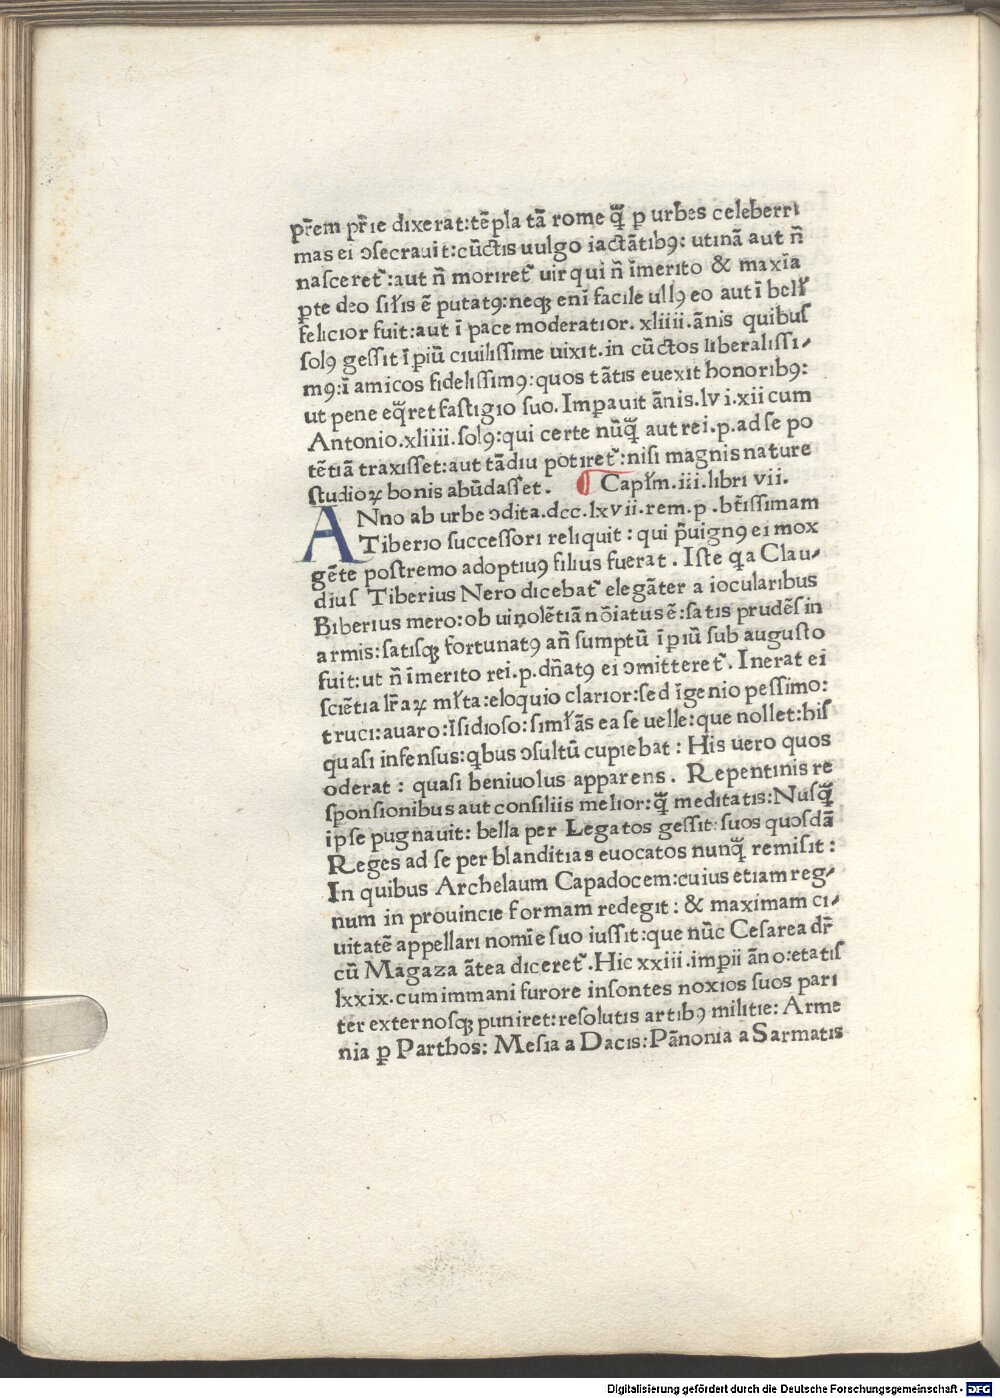 pr̃em pr̃ie dixerat:tẽpla tã rome q̃ꝫ ꝑ urbes celeberri
mas ei ɔſecrauit:cũctis uulgo iactãtibꝯ: utinã aut ñ
naſceret᷑:aut ñ moriret᷑ uir qui ñ ĩmerito & maxĩa
ꝑte deo ſiłis ẽ putatꝯ:neqꝫ eni facile ullꝯ eo aut ĩ bell̃
felicior fuit:aut ĩ pace moderatior. xliiii.ãnis quibuſ
ſolꝯ geſſit ĩpiũ ciuiliſſime uixit.in cũctos liberaliſſi-
mꝯ:ĩ amicos fideliſſimꝯ:quos tãtis euexit honoribꝯ:
ut pene eq̃ret faſtigio ſuo. Imꝑauit ãnis.lvi.xii cum
Antonio.xliiii.ſolꝯ:qui certe nũq̃ꝫ aut rei.p.ad ſe po
tẽtiã traxiſſet:aut tãdiu potiret᷑:niſi magnis nature
ſtudioꝝ bonis abũdaſſet. ¶ Capłm.iii.libri vii.
ANno ab urbe ɔdita.dcc.lxvii.rem.p.bt̃iſſimam
Tiberio ſucceſſori reliquit: qui p̃uignꝯ ei mox
gẽte poſtremo adoptiuꝯ filius fuerat. Iſte qa Clau-
diuſ Tiberius Nero dicebat᷑ elegãter a iocularibus
Biberius mero:ob uinolẽtiã nõiatus ẽ:ſatis prudẽſ in
armis:ſatiſqꝫ fortunatꝯ añ ſumptũ ĩpiũ ſub auguſto
fuit:ut ñ ĩmerito rei.p.dñatꝯ ei ɔmitteret᷑. Inerat ei
ſciẽtia lr̃aꝝ młta:eloquio clarior:ſed ĩgenio peſſimo:
truci:auaro:ĩſidioſo:ſimłãs ea ſe uelle:que nollet:hiſ
quaſi infenſus:qbus ɔſultũ cupiebat: His uero quos
oderat: quaſi beniuolus apparens. Repentinis re
ſponſionibus aut conſiliis melior:q̃ꝫ meditatis:Nuſq̃ꝫ
ipſe pugnauit: bella per Legatos geſſit:ſuos quoſdã
Reges ad ſe per blanditias euocatos nunq̃ꝫ remiſit:
In quibus Archelaum Capadocem:cuius etiam reg-
num in prouincie formam redegit: & maximam ci-
uitatẽ appellari nomĩe ſuo iuſſit:que nũc Ceſarea dr̃
cũ Magaza ãtea diceret᷑.Hic xxiii.imꝑii ãno:etatiſ
lxxix.cum immani furore inſontes noxios ſuos pari
ter externoſqꝫ puniret:reſolutis artibꝯ militie: Arme
nia ꝑ Parthos: Meſia a Dacis:Pãnonia a Sarmatis
Digitalisierung gefördert durch die Deutsche Forschungsgemeinschaft - DFG